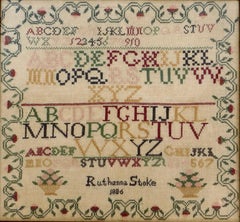 ABCDEFG HIJKLMNOPQRSTUV
WX 123456 910
ABCDEFGHIJKL
MNOPQRSTUVW
XYZ
ABCDEFGHIJKL
MNOPQRSTUV
WXYZ
ABCDEFG HIJKL
MNO
STUVWXYZ1 567
Ruthanna Stoke
1986